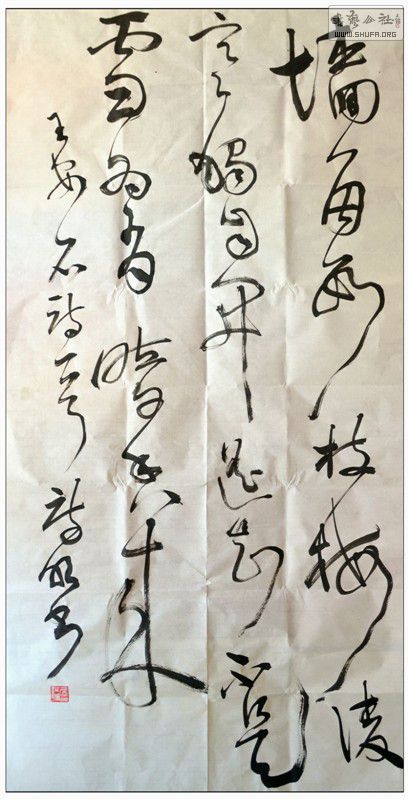 墙角数枝梅凌
寒獨自开遥知不是
雪为有暗香来
王安石诗一首
書藝公社
WWW.SHUFA.ORG